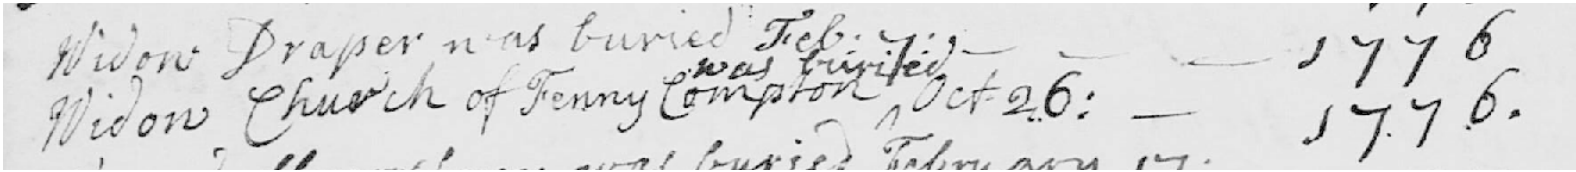 Widow Draper was buried Feb. 7. — — — 1776
Widow Church of Fenny Compton ^ was buried Oct. 26: — 1776.
was buried February 17.